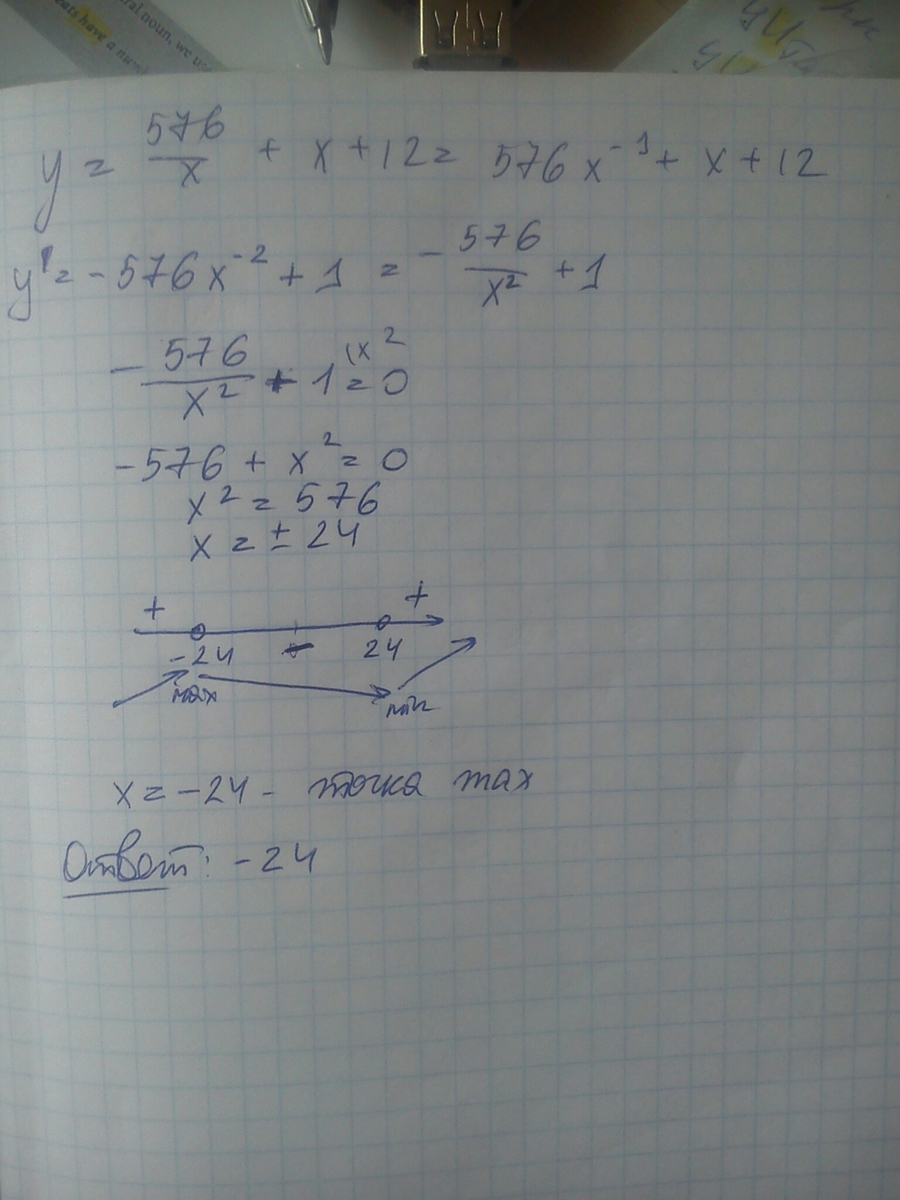 ral noun, we u
ats have a num
y = 576/x + x + 12 = 576x⁻¹ + x + 12
y' = -576x⁻² + 1 = -576/x² + 1
-576/x² + 1 = 0 |x²
-576 + x² = 0
x² = 576
x = ± 24
+ +
-24 - 24
max min
x = -24 - точка max
Ответ: -24